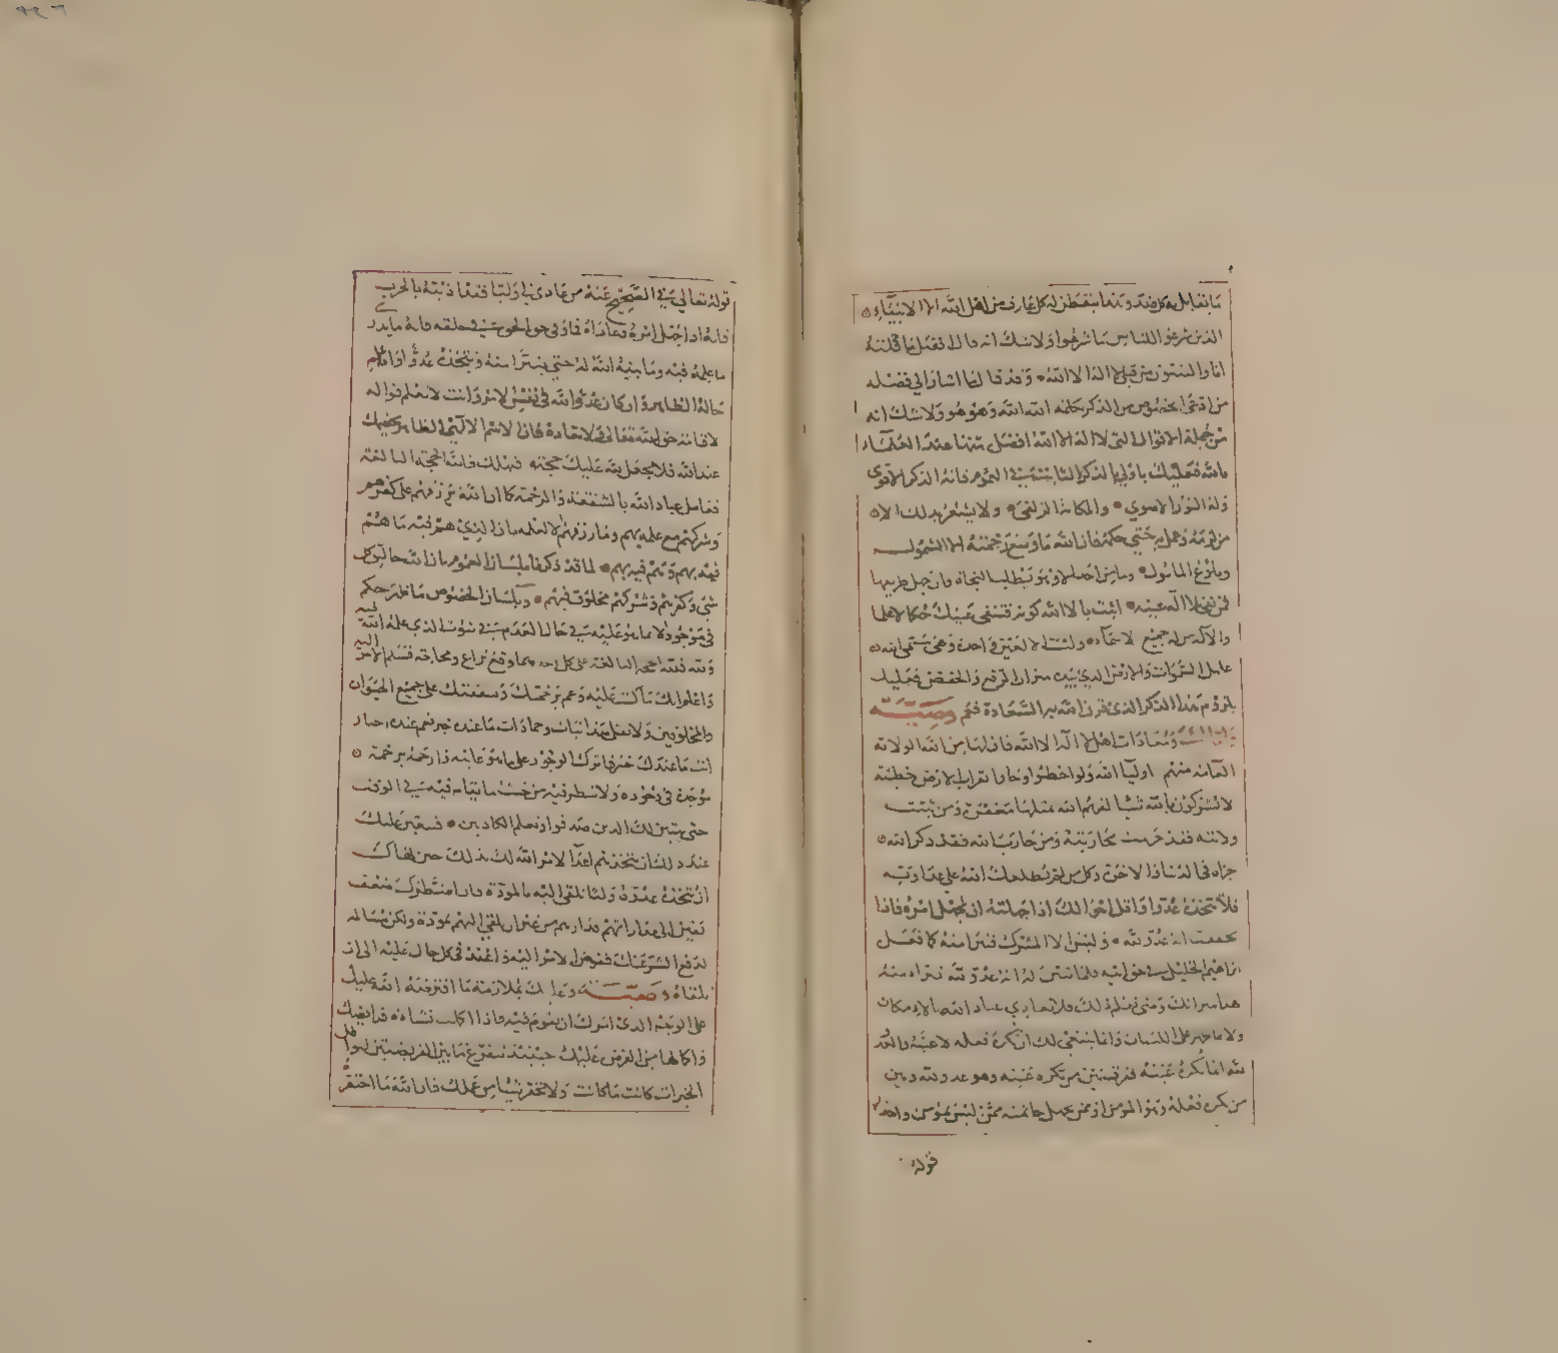 ما يقابل به كل ضد وندا يتفطن له كل عارف من اهل الله الا الانبياء
الذين شرعوا للناس ما شرعوا ولا شك انه قال افضل ما قلته
انا والنبيون من قبلي لا اله الا الله وقد قال لما اشار الي فضله
من ادعى الخصوص من الذكر بكلمه الله الله وهو هو ولا شك انه
من جملة الاقوال التي لا اله الا الله افضل منها عند العلماء
بالله فعليك يا ولي بالذكر الثابت في العموم فانه الذكر الاقوى
وله النور الاضوى والمكانة الزلفى ولا يشعر بذلك الا
من لزمه وعمل به حتى حكمه فان الله ما وسع رحمته الا الشمول
وبلوغ المامول وما من احد الا وهو يطلب النجاة وان جهل طريقها
فمن نفى بلا اله عينه اثبت بالا الله كونه فتنفي عينك حكما لا علما
والاله من له جميع الاسماء وليست الا لعين واحدة وهي مسمى الله
عامل السموات والارض الذي بيده ميزان الرفع والخفض فعليك
بلزوم هذا الذكر الذي قرن الله به السعادة فعم وصية
واياك ومعادات اهل لا اله الا الله فان لها من الله الولاية
العامة فهم اولياء الله ولو اخطئوا وجاوا بقراب الارض خطيئة
لا يشركون بالله شيا لقيهم الله بمثلها مغفرة ومن ثبتت
ولايته فقد حرمت محاربته ومن حارب الله فقد ذكر الله
جزاه في الدنيا والاخرة وكل من لم يطلعك الله على عداوته
فلا تتخذه عدوا واقل احوالك اذا جهلته ان تهمل امره فاذا
تحققت انه عدو لله وليس الا المشرك فتبرا منه كما فعل
ابراهيم الخليل في حق ابيه فلما تبين له انه عدو لله تبراه منه
هذا ميزانك ومتى لم تعلم ذلك فلا تعادي عباد الله بالامكان
ولا ما ظهر على اللسان وانما ينبغي لك ان تكره فعله لا عينه والعدو
لله انما تكره عينه ففرق بين من تكره عينه وهو عدو لله وبين
من تكره فعله وهو المومن او من تجهل خاتمته ممن ليس بمومن واحذر
قوله
قوله تعالى في الصحيح عنه من عادى لي وليا فقد اذنته بالحرب
فانه اذا جهل امره وعاداه فما وفى حق الحق في خلقه فانه ما يدري
ما علم الله فيه وما بينه الله له حتى يتبرا منه ويتخذه عدوا واذا علم
حاله الظاهر وان كان عدوا لله في نفس الامر وانت لا تعلم فواله
لاقامة حق الله تعالى ولا تعاده فان الاسم الالهي الظاهر يخصمك
عند الله فلا تجعل لله عليك حجة فتهلك فان لله الحجة البالغة
فعامل عباد الله بالشفقة والرحمة كما ان الله يرزقهم على كفرهم
وشركهم مع علمه بهم وما رزقهم الا لعلمه بان الذي هم فيه ما هم
فيه بهم وهم فيه بهم لما قد ذكرناه بلسان العموم بان الله خالق كل
شي وكفرهم وشركهم مخلوق فيهم وبلسان الخصوص ما ظهر حكم
في موجود الا بما هو عليه في حال العدم في ثبوته الذي علمه الله فيه
ولله فلله الحجة البالغة على كل احد مهما وقع نزاع ومحاجة فسلم الامر اليه
واعلم انك ما كنت عليه وعم برحمتك وشفقتك على جميع الحيوان
والمخلوقين ولا تقل هذا نبات وجماد ات ما عندهم خبر نعم عندهم اخبار
انت ما عندك خبر فاترك الوجود على ما هو عليه وارحمه برحمة
موجده في وجوده ولا تنظر فيه من حيث ما يقام فيه في الوقت
حتى يتبين لك الذين صدقوا وتعلم الكاذبين فتعين عليك
عند ذلك ان تتخذهم اعداء لامر الله لك بذلك حين نهاك
ان تتخذ عدوه وليا تلقي اليه بالمودة فان اضطرك ضعف
يقين الى مداراتهم فدارهم من غير ان تلقي اليهم بمودة ولكن مسالمة
لدفع الشر عنك ففوض الامر اليه واعتمد في كل حال عليه الى ان
تلقاه وصية وعليك بملازمة ما افترضه الله عليك
على الوجه الذي امرك ان تقوم فيه فاذا اكملت نشاة فرايضك
واكمالها من الفرض عليك حينئذ تتفرغ ما بين الفريضتين لنوافل
الخيرات كانت ما كانت ولا تحقر شيا من عملك فان الله ما احتقره